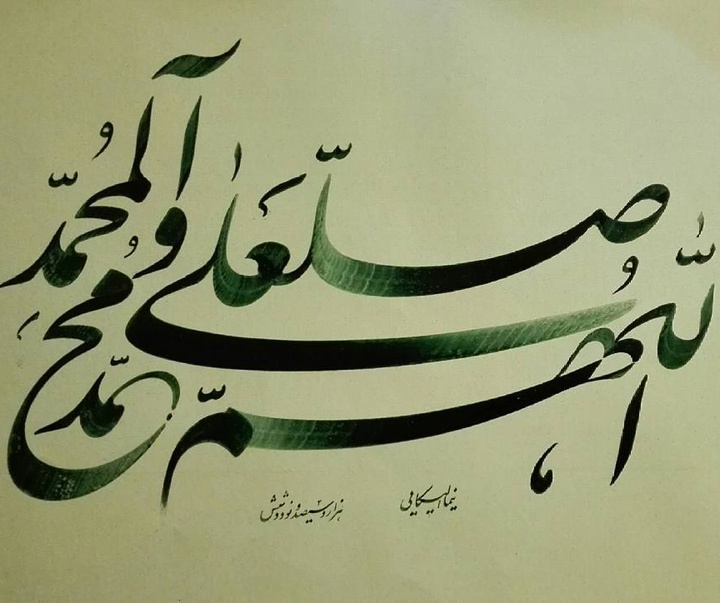 اللّٰهُمَّ صَلِّ عَلٰی مُحَمَّد وَ آلِ مُحَمَّد
نیما الیکایی
هزار و سیصد و نود و شش